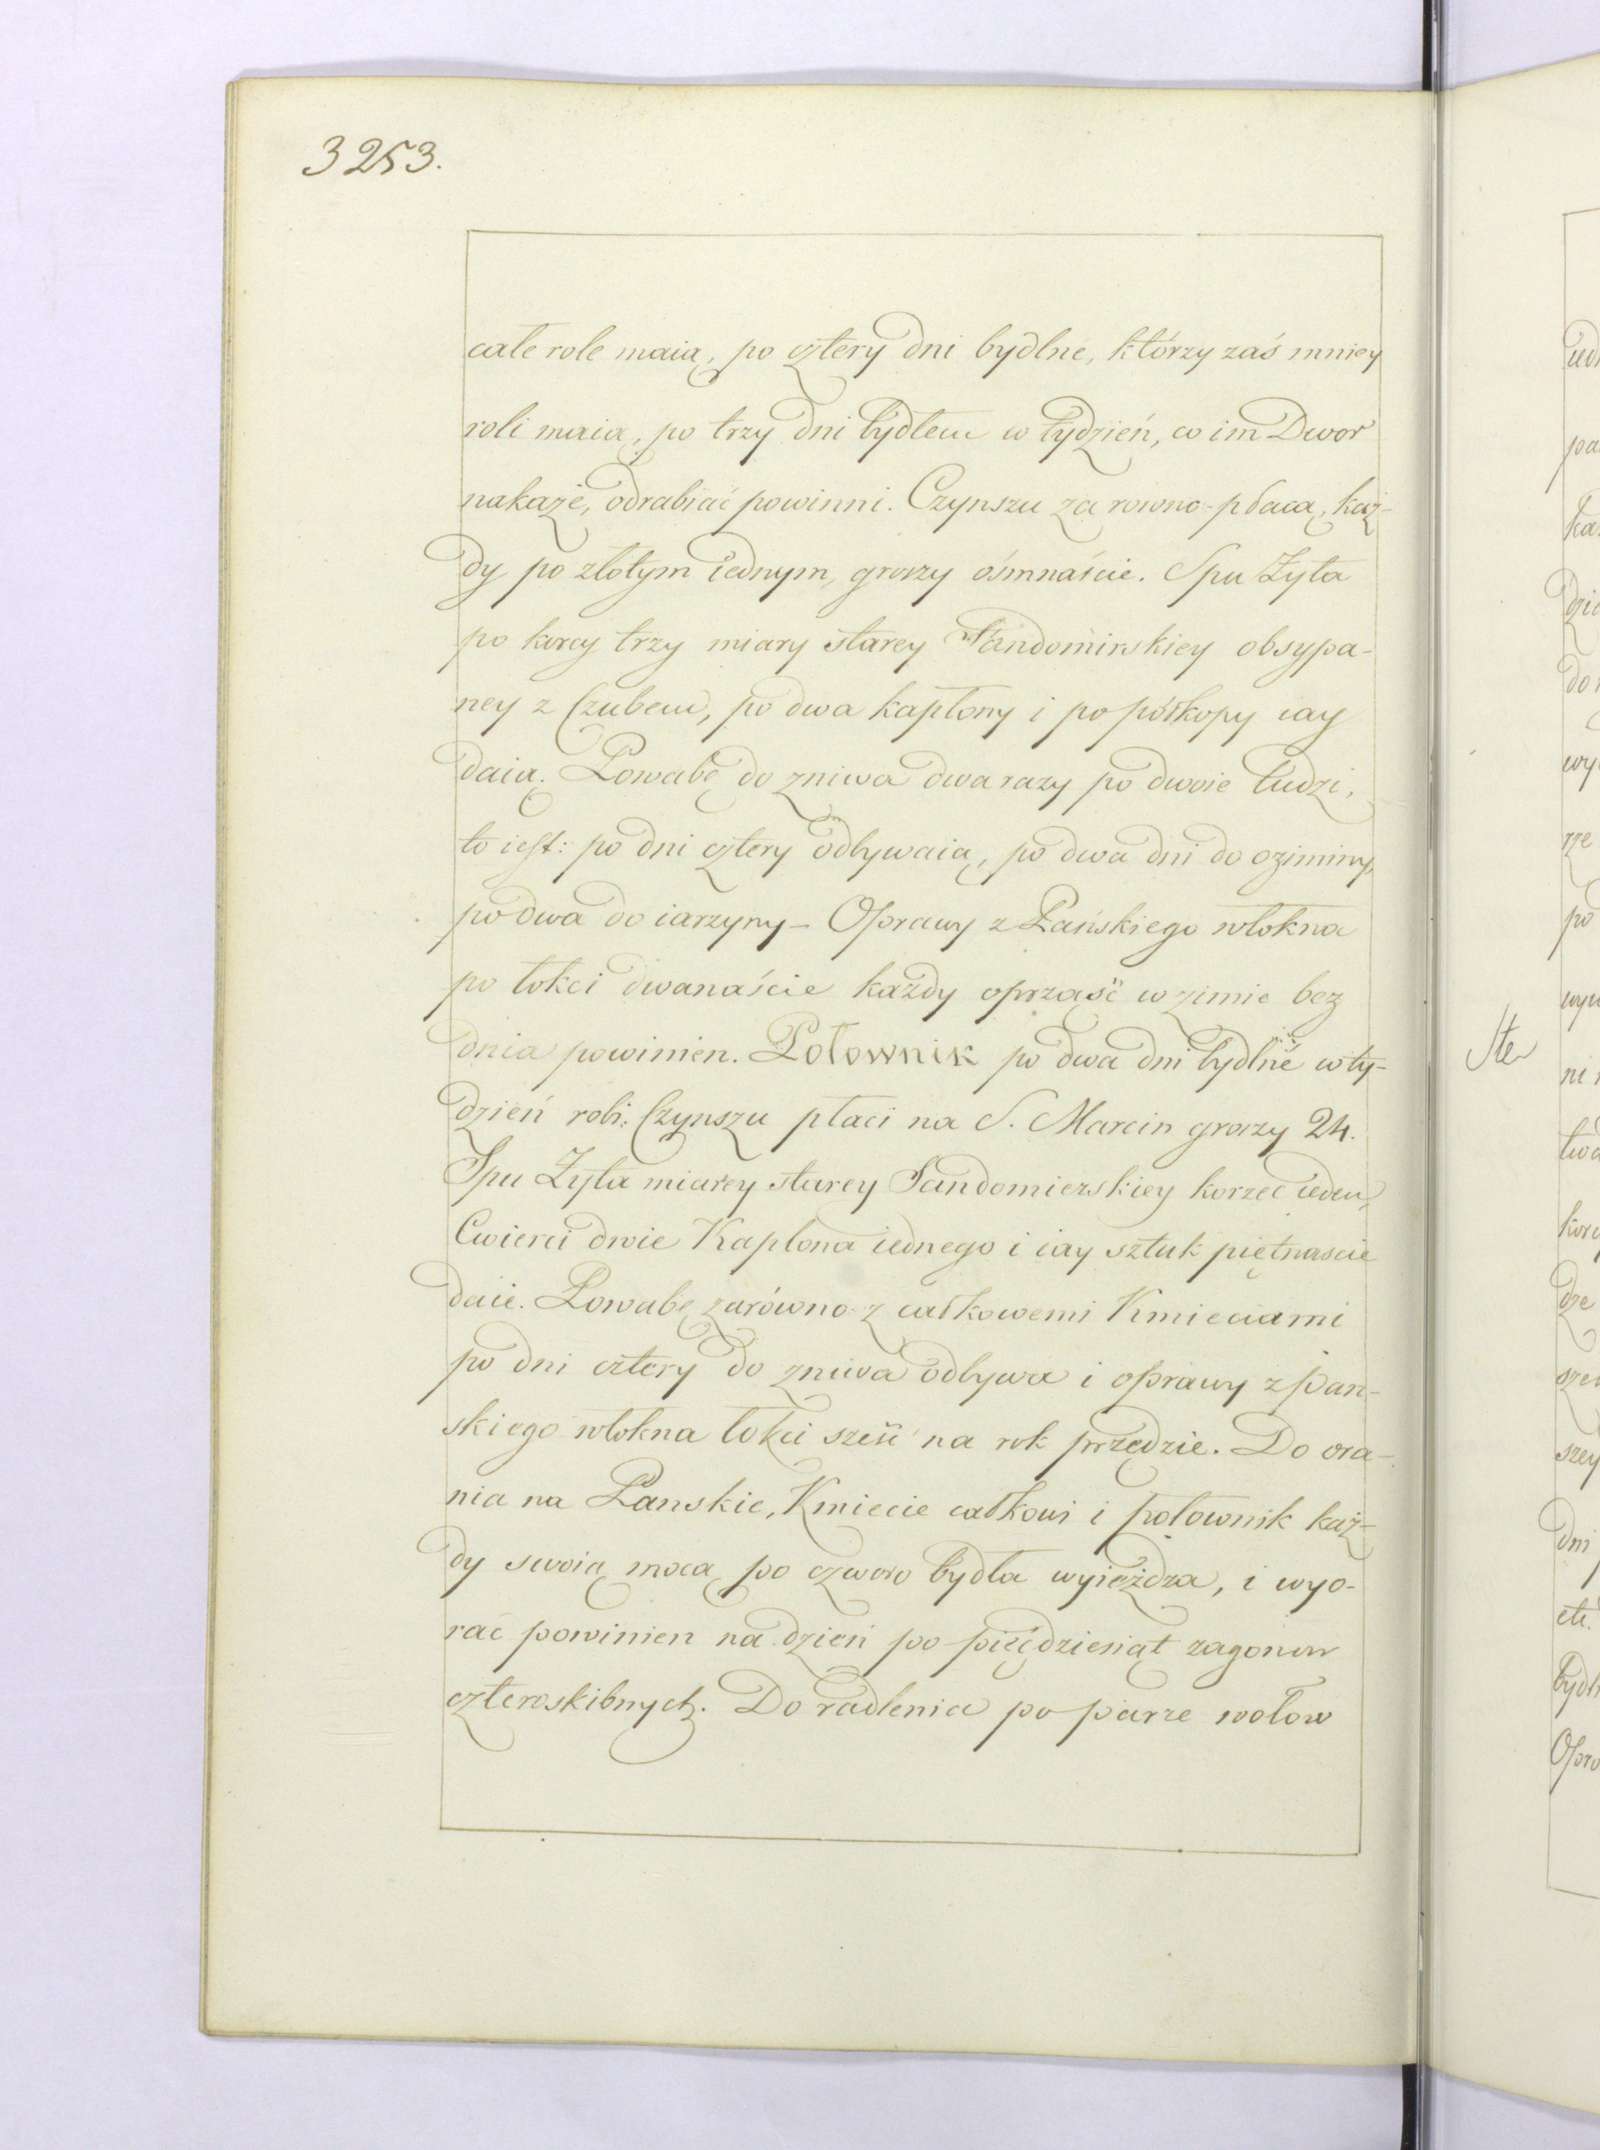 3253.
całe role maią, po cztery dni bydlne, którzy zaś mniey
roli maią, po trzy dni bydłem w tydzień, co im Dwor
nakaże, odrabiać powinni. Czynszu za rowno płacą, każ-
dy po złotym iednym, groszy ośmnaście. Spu Żyta
po korcy trzy miary starey Sandomirskiey obsypa-
ney z Czubem, po dwa kapłony i po półkopy iay
daią. Powabę do żniwa dwa razy po dwoie ludzi,
to iest: po dni cztery odbywaią, po dwa dni do oziminy,
po dwa do iarzyny – Oprawy z Pańskiego włokna
po łokci dwanaście każdy oprząść w zimie bez
dnia powinien. Połownik po dwa dni bydlne w ty-
dzień robi: Czynszu płaci na S. Marcin groszy 24.
Spu Żyta miarey starey Sandomierskiey korzec ieden,
Cwierci dwie Kapłona iednego i iay sztuk piętnascie
daie. Powabę zarówno z całkowemi Kmieciami
po dni cztery do żniwa odbywa i oprawy z Pan-
skiego włokna łokci sześć na rok przędzie. Do ora-
nia na Panskie, Kmiecie całkowi i połownik każ-
dy swoią mocą po czworo bydła wyieżdża, i wyo-
rać powinien na dzień po pięćdziesiąt zagonow
czteroskibnych. Do radlenia po parze wołow